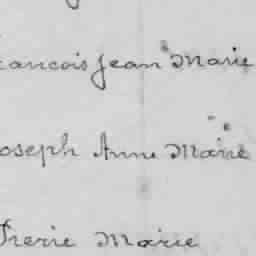 rancois Jean Marie
oseph Anne Marie
Pierie Marie